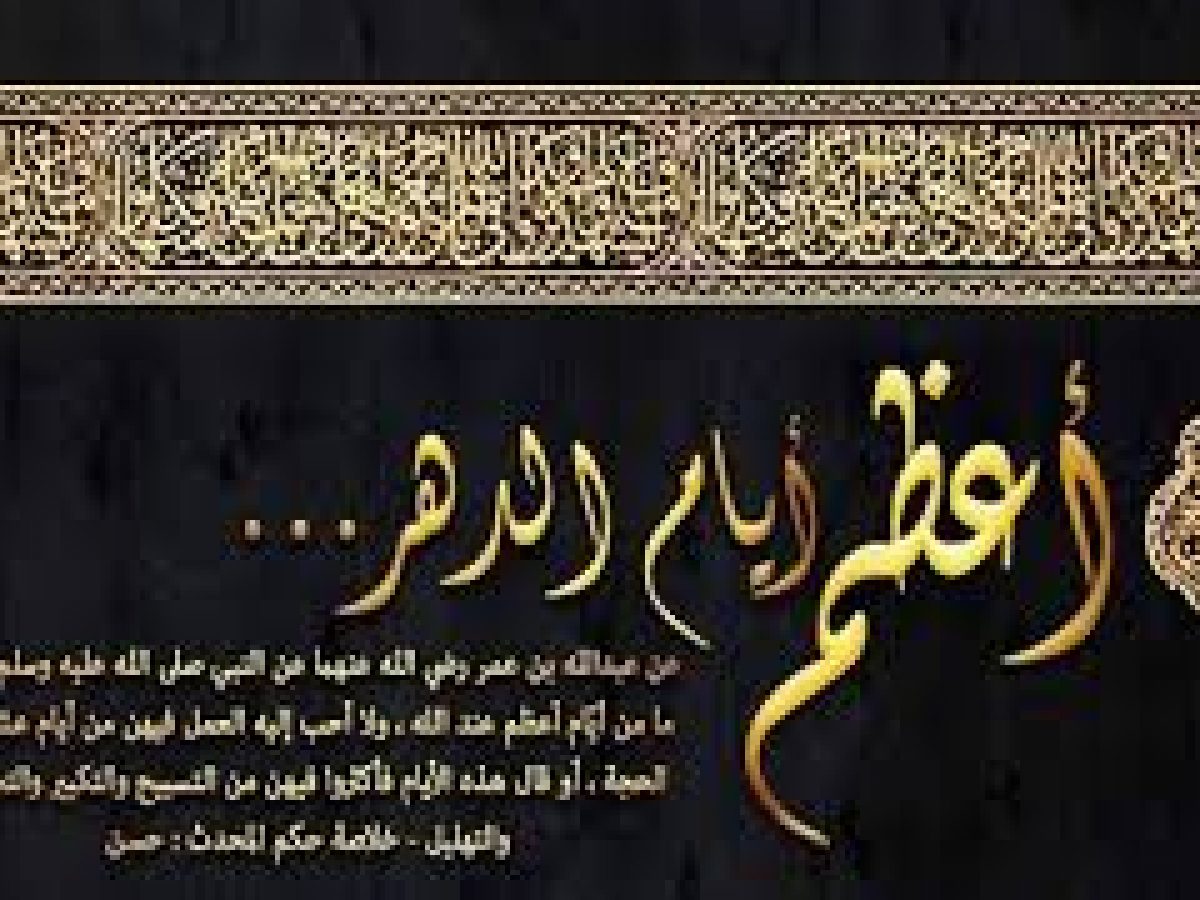 أعظم أيام الدهر ...
عن عبدالله بن عمر رضي الله عنهما عن النبي صلى الله عليه وسلم
ما من أيام أعظم عند الله ، ولا أحب إليه العمل فيهن من أيام
الحجة ، أو قال هذه الأيام فأكثروا فيهن من التسبيح والتكبير
والتهليل - خلاصة حكم المحدث : حسن